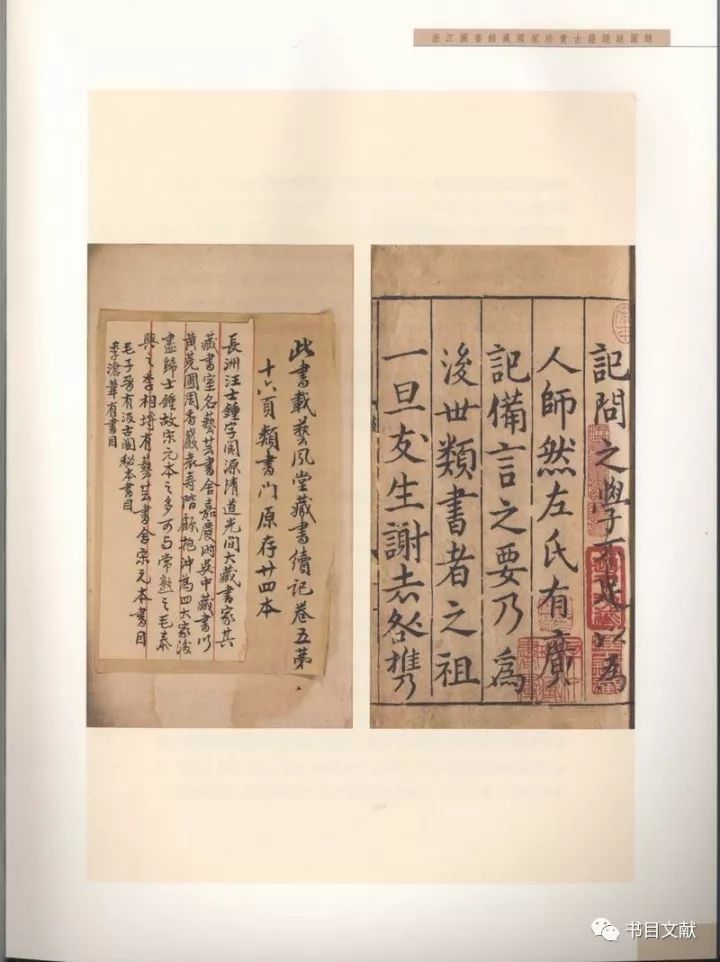 浙江圖書館藏國家珍貴古籍題跋圖錄
記問之學不足以為
人師然左氏有廣
記備言之要乃為
後世類書者之祖
一旦友生謝
此書載藝風堂藏書續記卷五第
十六頁類書門原存廿四本
長洲汪士鐘字閬源清道光間大藏書家其
藏書室名藝芸書舍嘉慶時吳中藏書以
黃蕘圃周香嚴袁壽階顧抱沖為四大家後
盡歸士鐘故宋元本之多可与常熟之毛泰
興之季相埒有藝芸書舍宋元本書目
毛子晉有汲古閣秘本書目
季滄葦有書目
书目文献